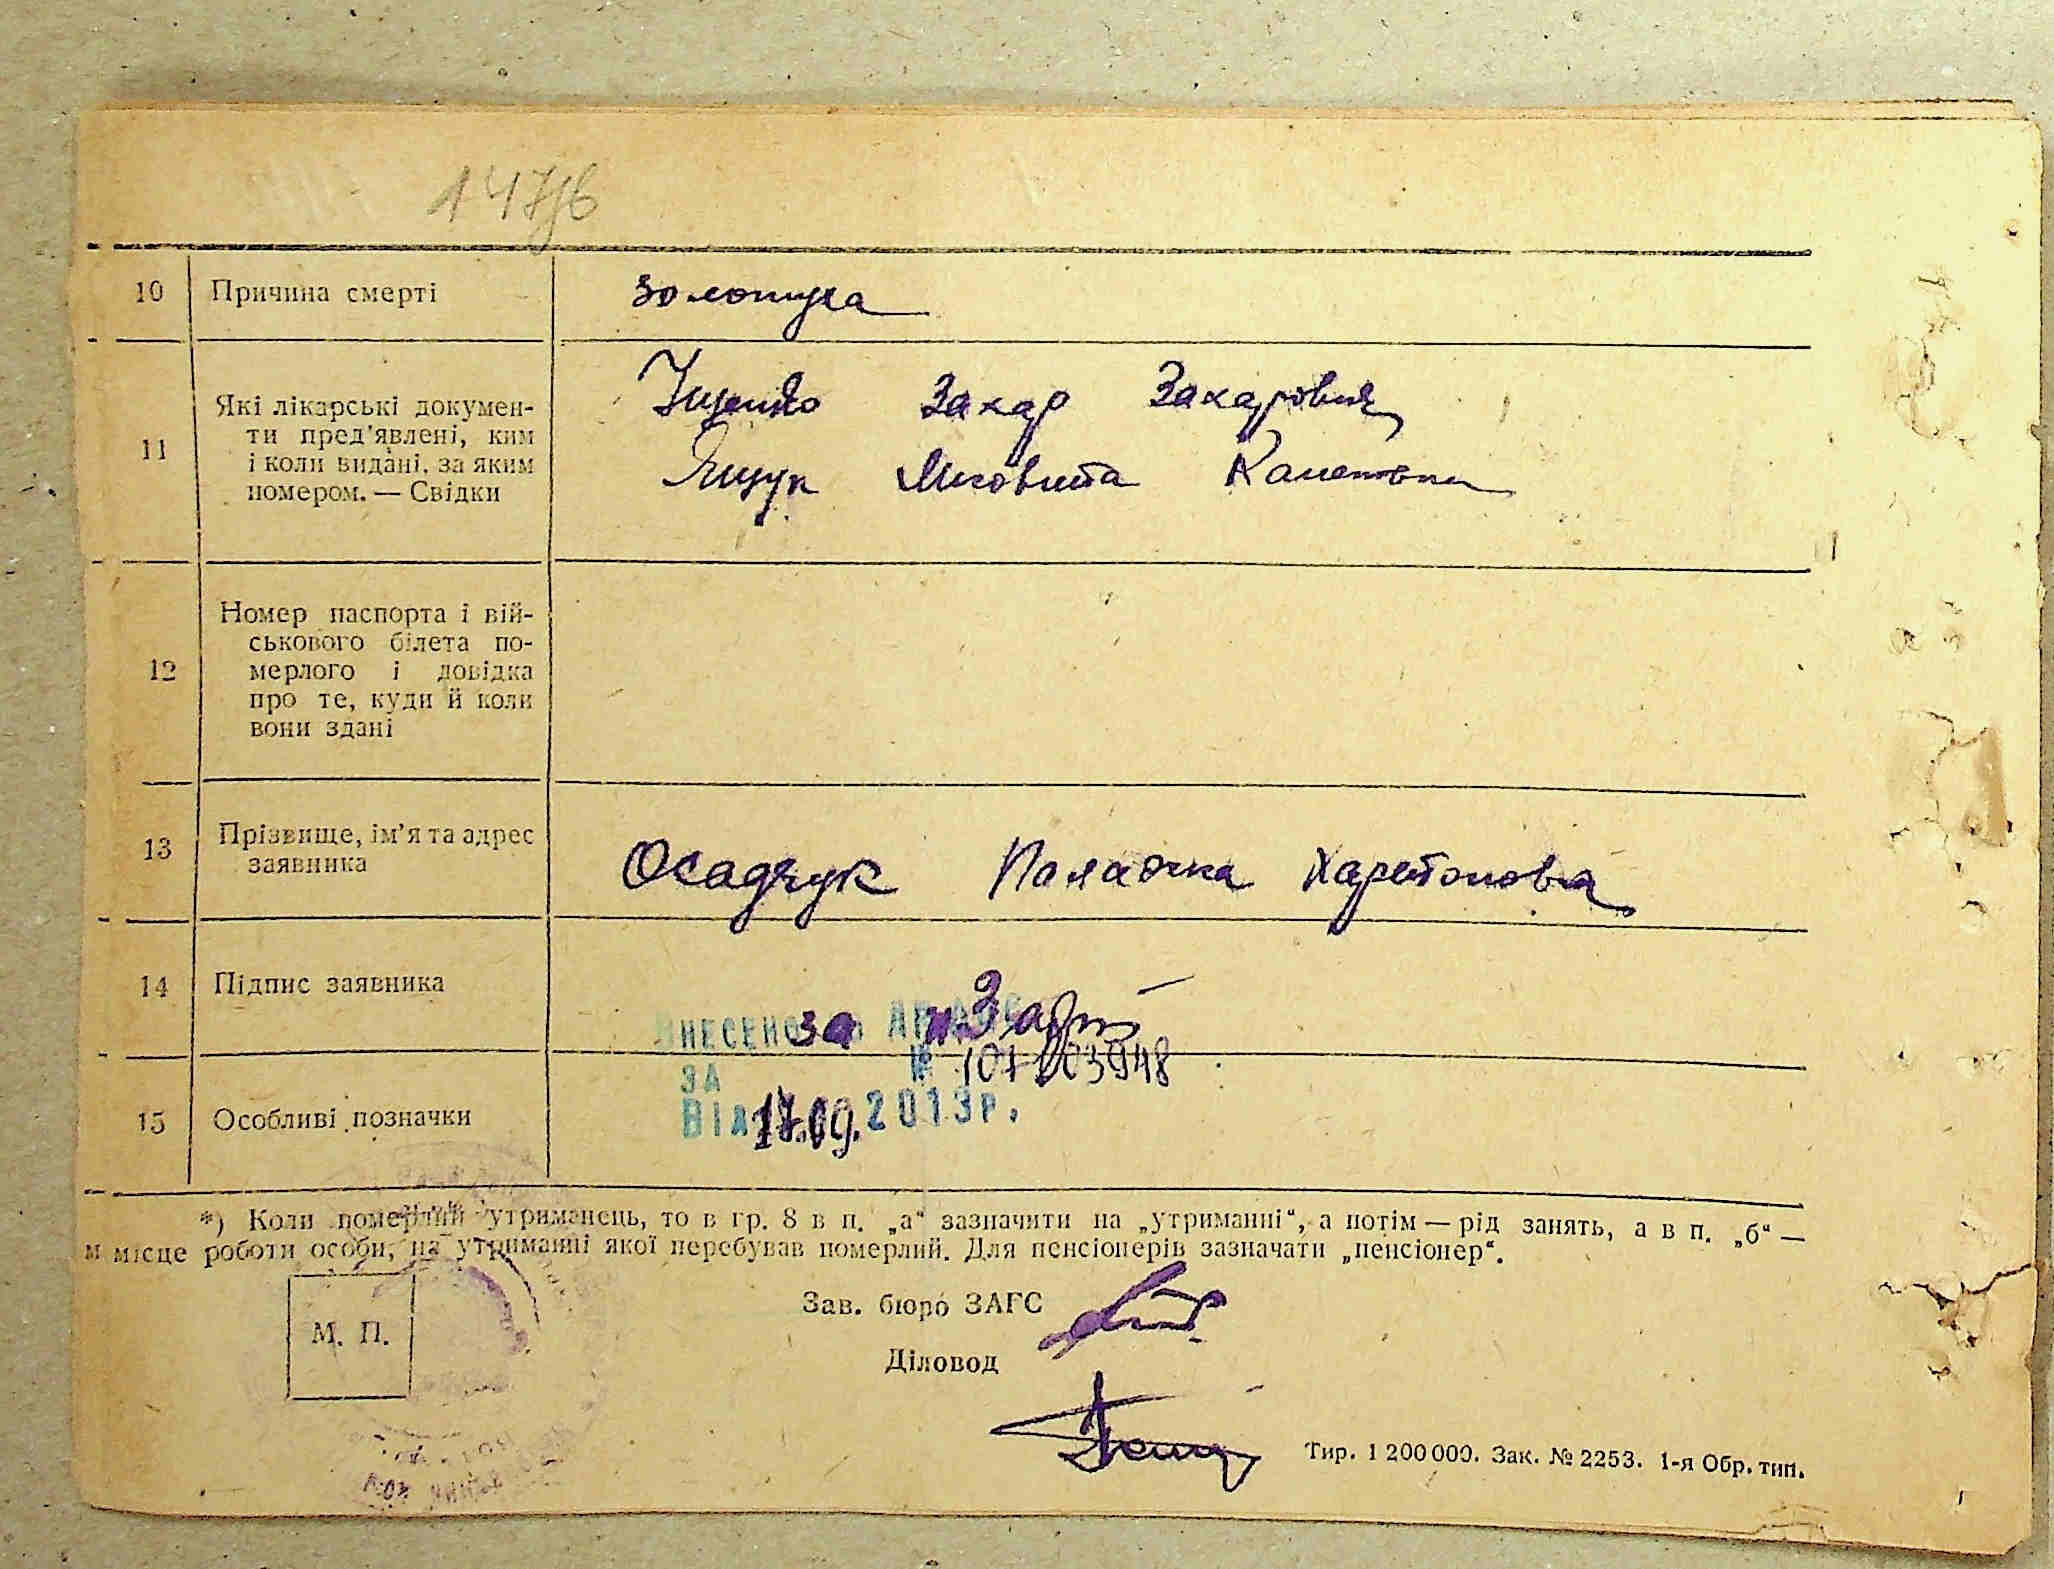 147/6
10 Причина смерті золотуха
11 Які лікарські докумен-
ти пред'явлені, ким
і коли видані, за яким
номером. — Свідки
Іщенко Захар Захарович
Ящук
12 Номер паспорта і вій-
ськового білета по-
мерлого і довідка
про те, куди й коли
вони здані
13 Прізвище, ім'я та адрес
заявника
Осадчук Палажка Харетоновна
14 Підпис заявника
за
15 Особливі позначки
ВНЕСЕНО ДО
ЗА №
Від 17.09.2013р.
*) Коли померлий утриманець, то в гр. 8 в п. „а" зазначити на „утриманні", а потім — рід занять, а в п. „б" —
м місце роботи особи, на утриманні якої перебував померлий. Для пенсіонерів зазначати „пенсіонер".
М. П.
Зав. бюро ЗАГС
Діловод
Тир. 1 200 000. Зак. № 2253. 1-я Обр. тип.